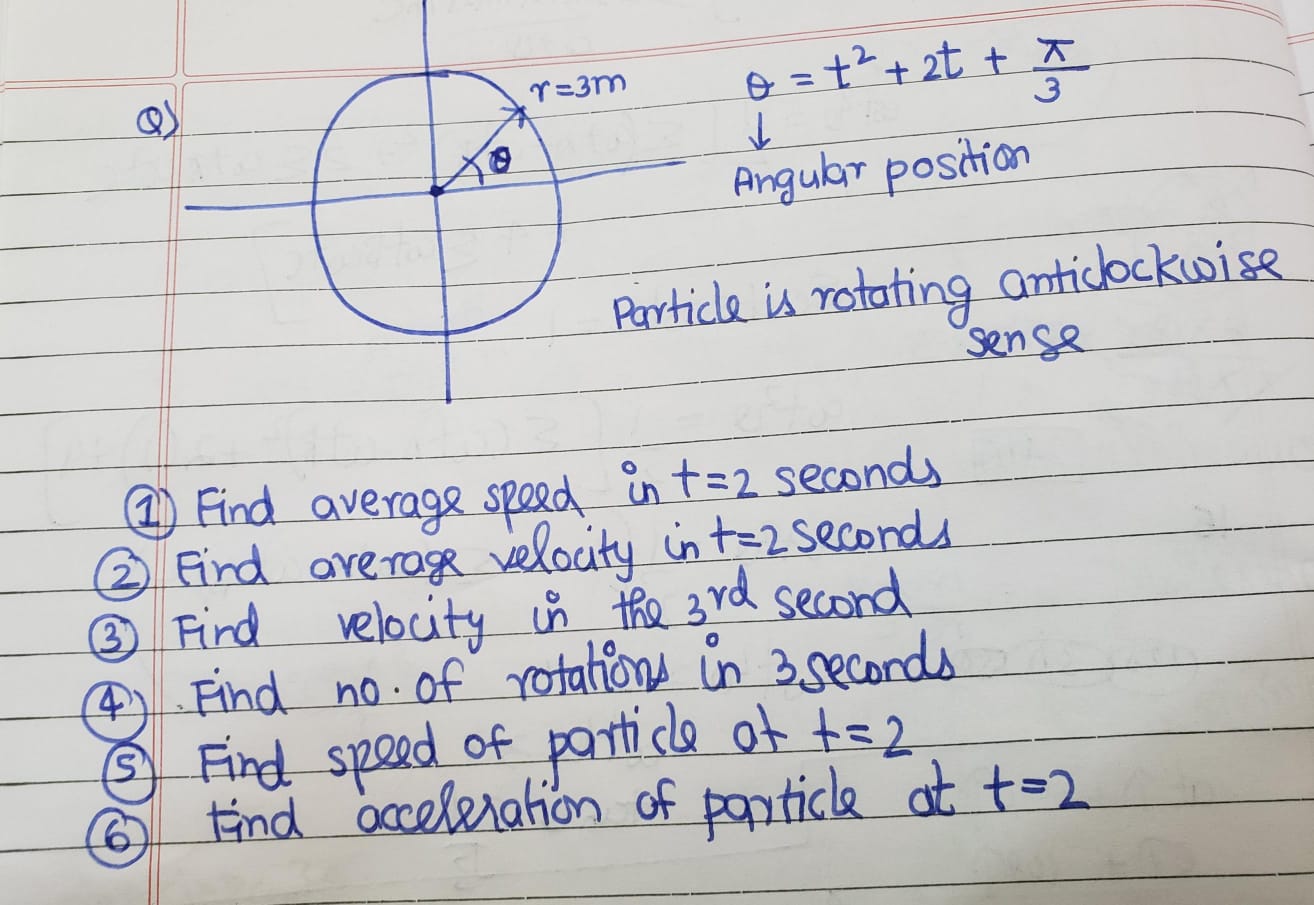 Q)
r=3m
θ = t² + 2t + π/3
θ
↓
Angular position
Particle is rotating anticlockwise
sense
① Find average speed in t=2 seconds
② Find average velocity in t=2 seconds
③ Find velocity in the 3rd second
④ Find no. of rotations in 3 seconds
⑤ Find speed of particle at t=2
⑥ Find acceleration of particle at t=2